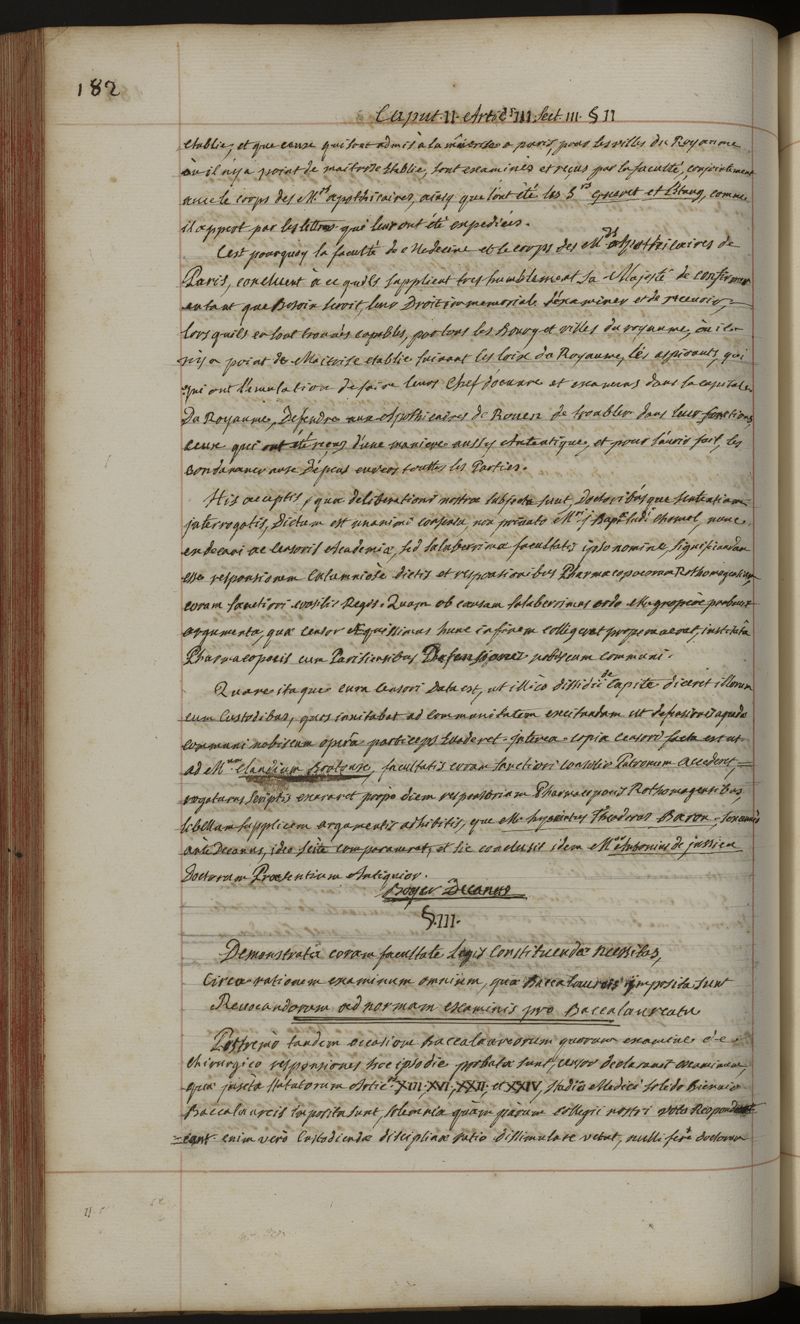 182
Caput II. Artic. III. Sect III. § II
etablie, et que ceux qui sont admis à la maitrise a paris pour les villes du Royaume
où il n'y a point de maitrise etablie, sont examinés et reçus par la faculté, conjointement
avec le corps des Mds apothicaires, ainsy que l'ont été les Srs Gueret et Estang, comme
il appert par les lettres qui leur ont été expediées.
C'est pourquoy la faculté de Medecine et le corps des Mds Apothicaires de
Paris, concluent à ce qu'ils supplient tres humblement Sa Majesté de confirmer
entant que Besoin seroit, leur Droit immemorial d'examiner et de recevoir,
lorsquils en sont trouvés capables, pour tous les Bourg et villes du royaume, où il
n'y a point de Maitrise etablie suivant les loix du Royaume, les aspirants, qui
qui ont l'emulation de faire leurs Chef d'oeuvre et examens dans la capitale
Du Royaume, Defendre aux Apothicaires de Rouen de troubler dans leur fonctions
ceux qui ont été reçus d'une maniere aussy Autentique, et pour l'avoir fait, les
Condamner aux Dépens envers touttes les Parties.
His acceptis, quæ deliberationi nostræ subjecta sunt, Doctoribúsque sententiam
jnterrogatis, Dictum est unanimi consensu, non privato Mri j Bapt. Ludi chomel, nunc
en decani ac Censoris Academiæ, sed saluberrimæ facultatis ipso nomine, significandam
esse responsionem Calumniosè dictis et responsionibus Pharmacopoeorum Rothomagensium
coram sanctiori consilio Regis. Quam ob causam saluberrimus ordo Magnopere probavit
argumenta, quæ censor Æquissimus hunc in finem collegerat properaverat, institutâ
Pharmacopoeis cum Parisiensibus Defensione nobiscum communi.
Quare itaque cura Censori Data est, ut illico dissidii de Capite diceret illorum
cum Custodibus, quos invitabat ad communitatem excitandam ut defensionis agendæ
communi nobiscum operâ particeps Evaderet. jnterea copia censori facta est ut
ad Mrum Claudium Bontoux, facultatis coram sanctiori Consilio Patronum accederet,
rogaturus scriptis exararet propè diem responsoriam Pharmacopoeis Rothomagensibus,
libellum supplicem argumentis adhibitis, quæ Mr hyacintus Theodorus Baron,
antè Decanus, ideo scitè comparaverat, et sic conclusit idem Mter Antonius de jussieu
Doctorum Præsentium Antiquior.
Boyer Decanus
§. III.
Demonstrata coram facultate Legis Constituendæ necessitas,
Circa rationem examinum omnium, quæ Baccalaureis imposita sunt
Revocandorum ad normam examinis pro Baccalaureatu
Postremò tandem occasione Baccalaureorum quorum examine de
chirurgico responsiones hoc ipso die probatæ sunt, censor declaravit examinum,
quæ juxta statutorum Artic. XIII. XVI, XXII, et XXIV, studio Medico toto Biennio
Baccalaureis imposita sunt, solemnia quàm parum collegii nostri votis Respondere
eant enim verò Custodiendæ disciplinæ ratio dissimulare vetat, nulli ferè doctorum